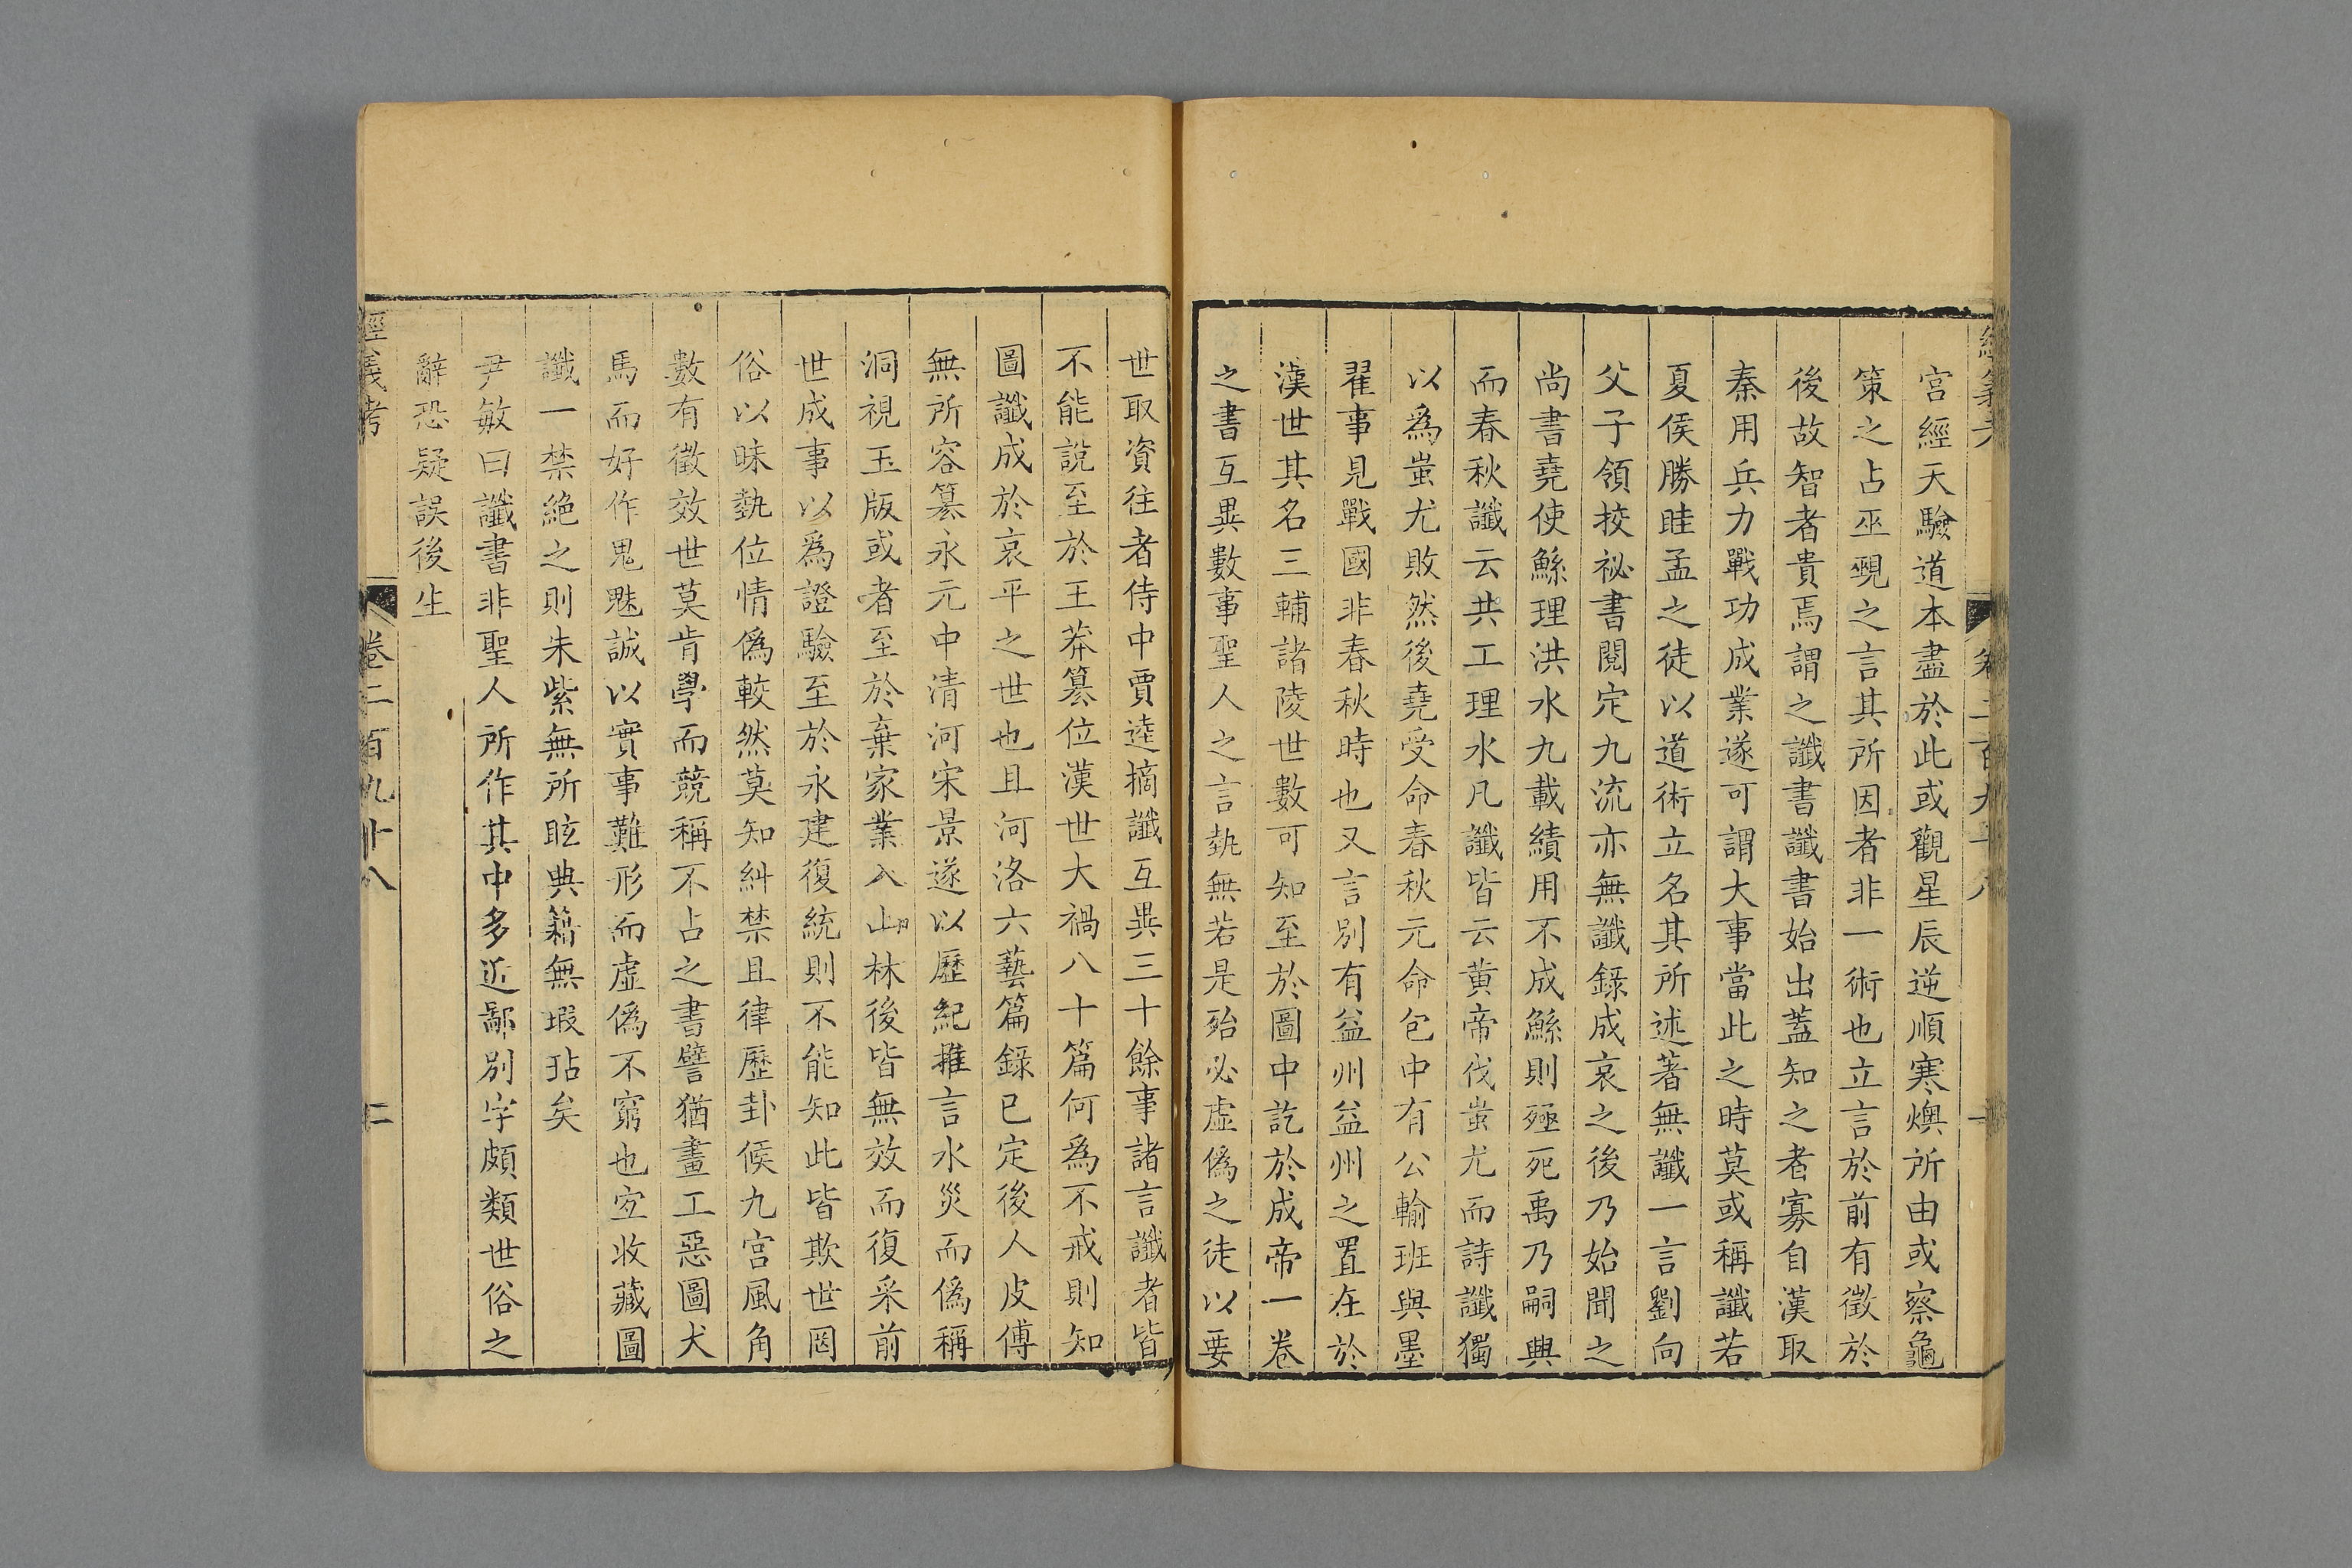 宮經天驗道本盡於此或觀星辰逆順寒燠所由或察龜
策之占巫覡之言其所因者非一術也立言於前有徵於
後故智者貴焉謂之讖書讖書始出蓋知之者寡自漢取
秦用兵力戰功成業遂可謂大事當此之時莫或稱讖若
夏侯勝眭孟之徒以道術立名其所述著無讖一言劉向
父子領挍祕書閱定九流亦無讖錄成哀之後乃始聞之
尚書堯使鯀理洪水九載績用不成鯀則殛死禹乃嗣興
而春秋讖云共工理水凡讖皆云黃帝伐蚩尤而詩讖獨
以爲蚩尤敗然後堯受命春秋元命包中有公輸班與墨
翟事見戰國非春秋時也又言別有益州益州之置在於
漢世其名三輔諸陵世數可知至於圖中訖於成帝一卷
之書互異數事聖人之言埶無若是殆必虛僞之徒以要
世取資往者侍中賈逵摘讖互異三十餘事諸言讖者皆
不能說至於王莽篡位漢世大禍八十篇何爲不戒則知
圖讖成於哀平之世也且河洛六藝篇錄已定後人皮傅
無所容篡永元中清河宋景遂以歷紀推言水災而僞稱
洞視玉版或者至於棄家業入山林後皆無效而復采前
世成事以爲證驗至於永建復統則不能知此皆欺世罔
俗以昧埶位情僞較然莫知糾禁且律歷卦候九宮風角
數有徵效世莫肯學而競稱不占之書譬猶畫工惡圖犬
馬而好作鬼魅誠以實事難形而虛僞不窮也宜收藏圖
讖一禁絕之則朱紫無所眩典籍無瑕玷矣
尹敏曰讖書非聖人所作其中多近鄙別字頗類世俗之
辭恐疑誤後生
經義考
卷二百九十八
二